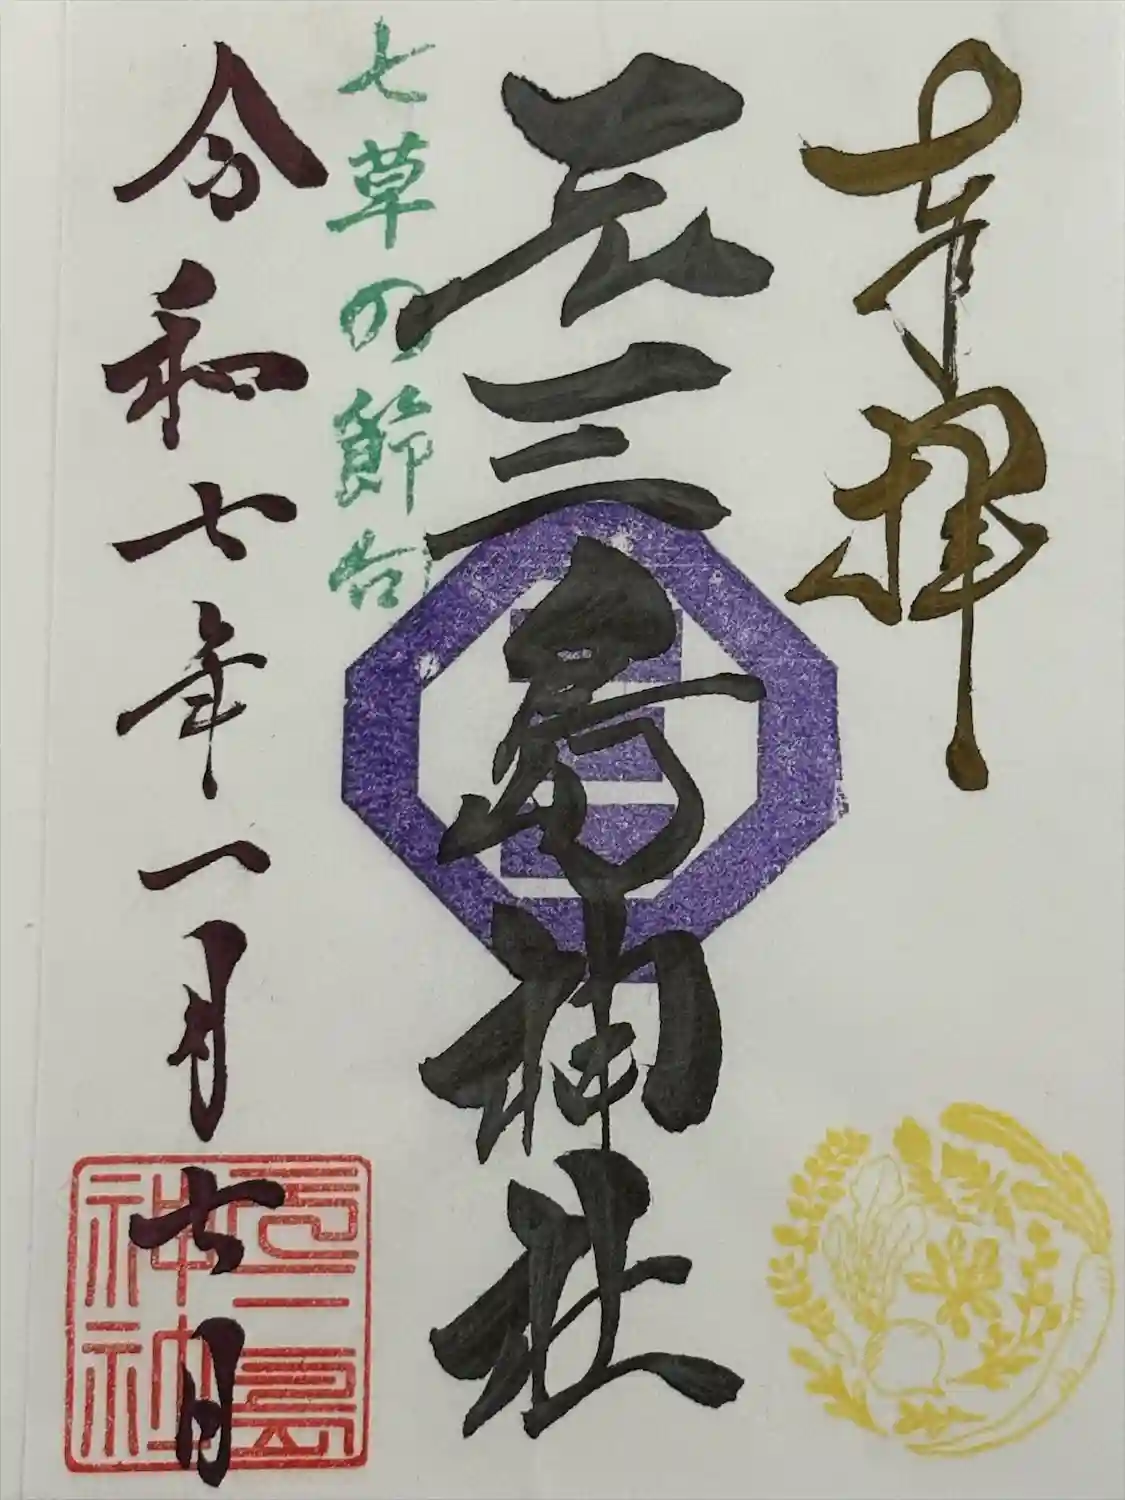 奉拝
元三島神社
七草の節句
令和七年一月七日
元三島
神社
三